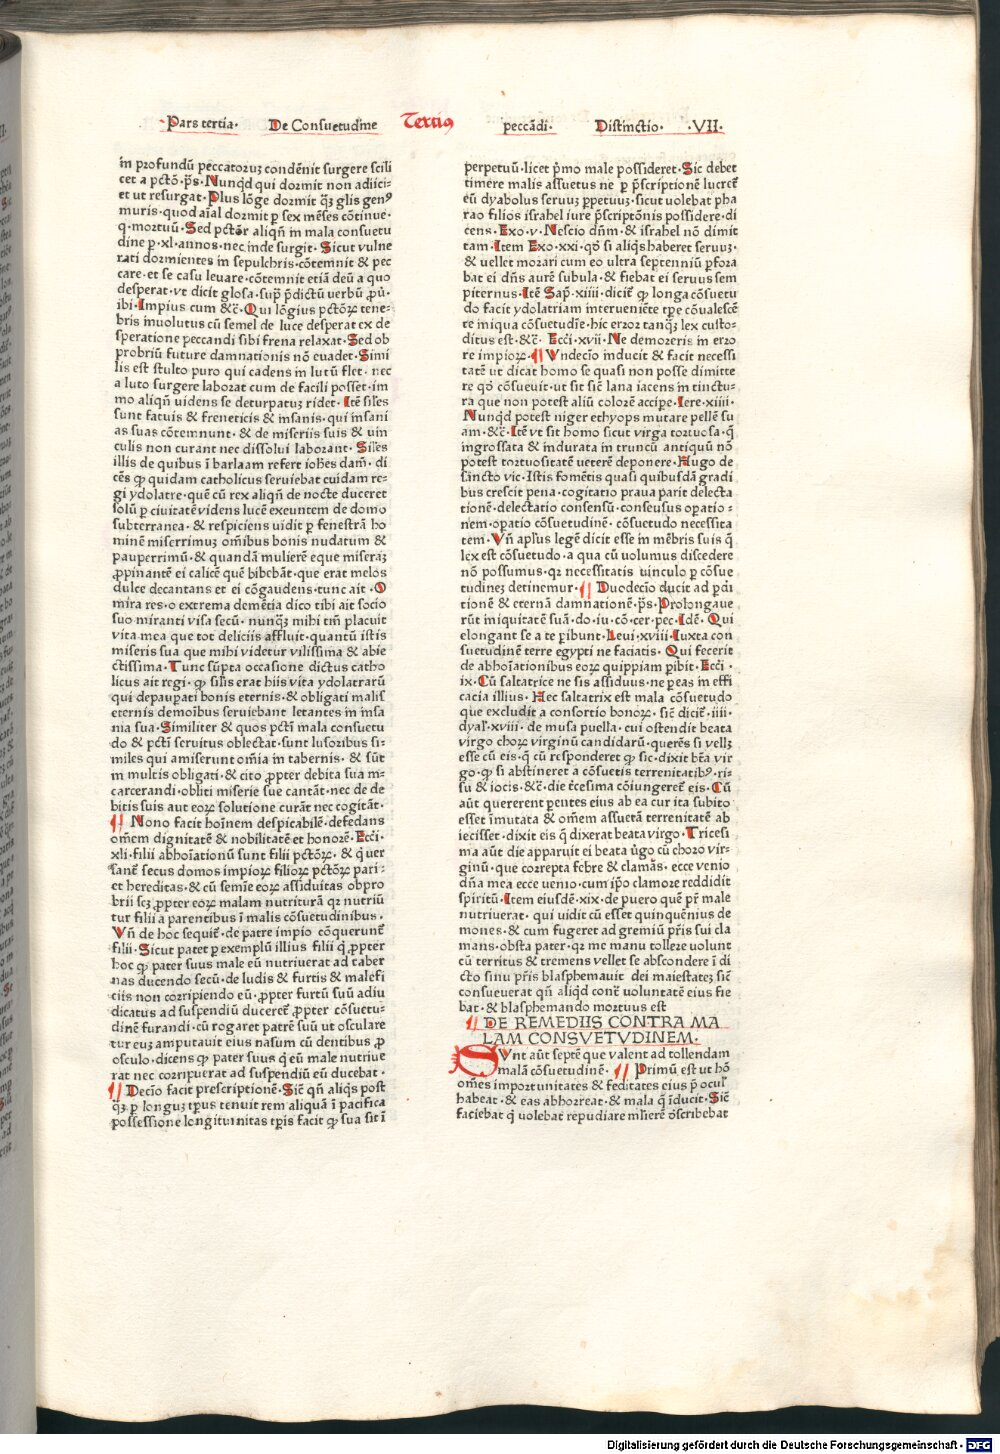 Pars tertia· De Consuetudīne Tertiꝰ peccādi· Distinctio· ·VII·
in profundū peccatoruꝫ condēnit surgere scili
cet a pctō·p̄s·Nunqd qui dormit non adiici⸗
et ut resurgat·Plus lōge dormit qꝫ glis genꝰ
muris·quod aīal dormit p sex mēses cōtinue·
q·mortuū·Sed pctōr aliqn̄ in mala consuetu
dine p·xl·annos·nec inde surgit·Sicut vulne
rati dormientes in sepulchris·cōtemnit & pec
care·et se casu leuare·cōtemnit etiā deū a quo
desperat·vt dicit glosa·sup p̄dictū uerbū ꝓu̇·
ibi·Impius cum &c̄·Qui lōgius pctōꝝ tene⸗
bris inuolutus cū semel de luce desperat ex de
speratione peccandi sibi frena relaxat·Sed ob
probriū future damnationis nō euadet·Simi
lis est stulto puro qui cadens in lutū flet·nec
a luto surgere laborat cum de facili posset·im
mo aliqn̄ uidens se deturpatuꝫ ridet·Itē sīles
sunt fatuis & freneticis & insanis·qui insani
as suas cōtemnunt·& de miseriis suis & uin
culis non curant nec dissolui laborant·Sīles
illis de quibus ī barlaam refert iohēs dam̄·di
cēs ꝙ quidam catholicus seruiebat cuidam re⸗
gi ydolatre·quē cū rex aliqn̄ de nocte duceret
solū p ciuitatē videns lucē exeuntem de domo
subterranea·& respiciens uidit p fenestrā ho
minē miserrimuꝫ om̄ibus bonis nudatum &
pauperrimū·& quandā mulierē eque miseraꝫ
ꝓpinantē ei calicē quē bibebāt·que erat melos
dulce decantans et ei cōgaudens·tunc ait·O
mira res·o extrema demētia dico tibi ait socio
suo miranti visa secū·nunqꝫ mihi tm̄ placuit
vita mea que tot deliciis affluit·quantū istis
miseris sua que mihi videtur vilissima & abie
ctissima·Tunc sūpta occasione dictus catho
licus ait regi·ꝙ sil̄is erat hiis vita ydolatrarū
qui depaupati bonis eternis·& obligati malis
eternis demoībus seruiebant letantes in insa
nia sua·Similiter & quos pctī mala consuetu
do & pctī seruitus oblectat·sunt lusoribus si⸗
miles qui amiserunt omīa in tabernis·& sūt
in multis obligati·& cito ꝓpter debita sua in⸗
carcerandi·obliti miserie sue cantāt·nec de de
bitis suis aut eoꝝ solutione curāt nec cogitāt·
¶ Nono facit hoīnem despicabilē·defedans
om̄em dignitatē & nobilitatē et honorē·Ecci
xli·filii abhoīationū sunt filii pctōꝝ·& q̇ uer
sant̄ secus domos impioꝝ filioꝝ pctōꝝ pari⸗
et hereditas·& cū semīe eoꝝ assiduitas obpro
brii scꝫ ꝓpter eoꝝ malam nutriturā qꝛ nutriū
tur filii a parentibus ī malis cōsuetudinibus·
Vn̄ de hoc sequit̄·de patre impio cōquerunt̄
filii·Sicut patet p exemplū illius filii q̇ ꝓpter
hoc ꝙ pater suus male eū nutriuerat ad taber
nas ducendo secū·de ludis & furtis & malefi
ciis non corripiendo eū·ꝓpter furtū suū adiu
dicatus ad suspendiū duceret̄ ꝓpter cōsuetu⸗
dinē furandi·cū rogaret patrē suū ut osculare
tur euꝫ amputauit eius nasum cū dentibus ꝓ
osculo·dicens ꝙ pater suus q̇ eū male nutriue
rat nec corripuerat ad suspendiū eū ducebat·
¶ Decīo facit prescriptionē·Sic̄ qn̄ aliqs post
qꝫ p longuꝫ tp̄us tenuit rem aliquā ī pacifica
possessione longiturnitas tp̄is facit ꝙ sua sit ī
perpetuū·licet p̄mo male possideret·Sic debet
timere malis assuetus ne p p̄scriptionē lucret̄
eū dyabolus seruuꝫ ppetuuꝫ·sicut uolebat pha
rao filios israhel iure p̄scriptōnis possidere·di
cens·Exo·v·Nescio dn̄m·& israhel nō dimit
tam·Item Exo·xxi·qō si aliqs haberet seruuꝫ·
& uellet morari cum eo ultra septenniū pfora
bat ei dn̄s aurē subula·& fiebat ei seruus sem
piternus·Itē Sap·xiiii·dicit̄ ꝙ longa cōsuetu
do facit ydolatriam interueniēte tp̄e cōualescē
te miqua cōsuetudīe·hic error tanqꝫ lex custo⸗
ditus est·&c̄·Ecci·xvii·Ne demoreris in erro
re impioꝝ·¶ Vndecīo inducit & facit necessi
tatē ut dicat homo se quasi non posse dimitte
re qō cōsueuit·ut sit sic̄ lana iacens in tinctu⸗
ra que non potest aliū colorē accipe·Iere·xiiii·
Nunqd potest niger ethyops mutare pellē su
am·&c̄·Itē vt sit homo sicut virga tortuosa·q̄
ingrossata & indurata in truncū antiquū nō
potest tortuositatē ueterē deponere·Hugo de
sancto vic·Istis fomētis quasi quibusdā gradi
bus crescit pena·cogitatio praua parit delecta
tionē·delectatio consensū·consensus opatio⸗
nem·opatio cōsuetudinē·cōsuetudo necessita
tem·Vn̄ apl̄us legē dicit esse in mēbris suis q̄
lex est cōsuetudo·a qua cū uolumus discedere
nō possumus·qꝛ necessitatis uinculo p cōsue
tudineꝫ detinemur·¶ Duodecīo ducit ad pdi
tionē & eternā damnationē·p̄s·Prolongaue
rūt iniquitatē suā·do·iu·cō·cer·pec·Idē·Qui
elongant se a te pibunt·Leui·xviii·Iuxta con
suetudinē terre egypti ne faciatis·Qui fecerit
de abhoīationibus eoꝝ quippiam pibit·Ecci·
ix·Cū saltatrice ne sis assiduus·ne peas in effi
cacia illius·Hec saltatrix est mala cōsuetudo
que excludit a consortio bonoꝝ·sic̄ dicit̄·iiii·
dyal̄·xviii·de musa puella·cui ostendit beata
virgo choꝝ virginū candidarū·querēs si velleꝫ
esse cū eis·q̄ cū responderet ꝙ sic·dixit bt̄a vir
go·ꝙ si abstineret a cōsuetis terrenitatibꝰ·ri⸗
su & iocis·&c̄·die tcesima cōiungeret̄ eis·Cū
aūt quererent pentes eius ab ea cur ita subito
esset īmutata & om̄em assuetā terrenitatē ab
iecisset·dixit eis q̄ dixerat beata uirgo·Tricesi
ma aūt die apparuit ei beata u̇go cū choro vir⸗
ginū·que correpta febre & clamās·ecce venio
dn̄a mea ecce uenio·cum ip̄o clamore reddidit
spiritū·Item eiusdē·xix·de puero quē pr̄ male
nutriuerat·qui uidit cū esset quinquēnius de
mones·& cum fugeret ad gremiū pr̄is sui cla
mans·obsta pater·qꝛ me manu tollere uolunt
cū territus & tremens vellet se abscondere ī di
cto sinu pr̄is blasphemauit dei maiestateꝫ sic̄
consueuerat qn̄ aliqd cont̄ uoluntatē eius fie
bat·& blasphemando mortuus est
¶ DE REMEDIIS CONTRA MA
LAM CONSVETVDINEM·
SVnt aūt septē que valent ad tollendam
malā cōsuetudinē·¶ Primū est ut hō
om̄es importunitates & feditates eius p̄ ocul᷒
habeat·& eas abhorreat·& mala q̄ īducit·Sic̄
faciebat q̇ uolebat repudiare mlīerē ōscribebat
Digitalisierung gefördert durch die Deutsche Forschungsgemeinschaft - DFG